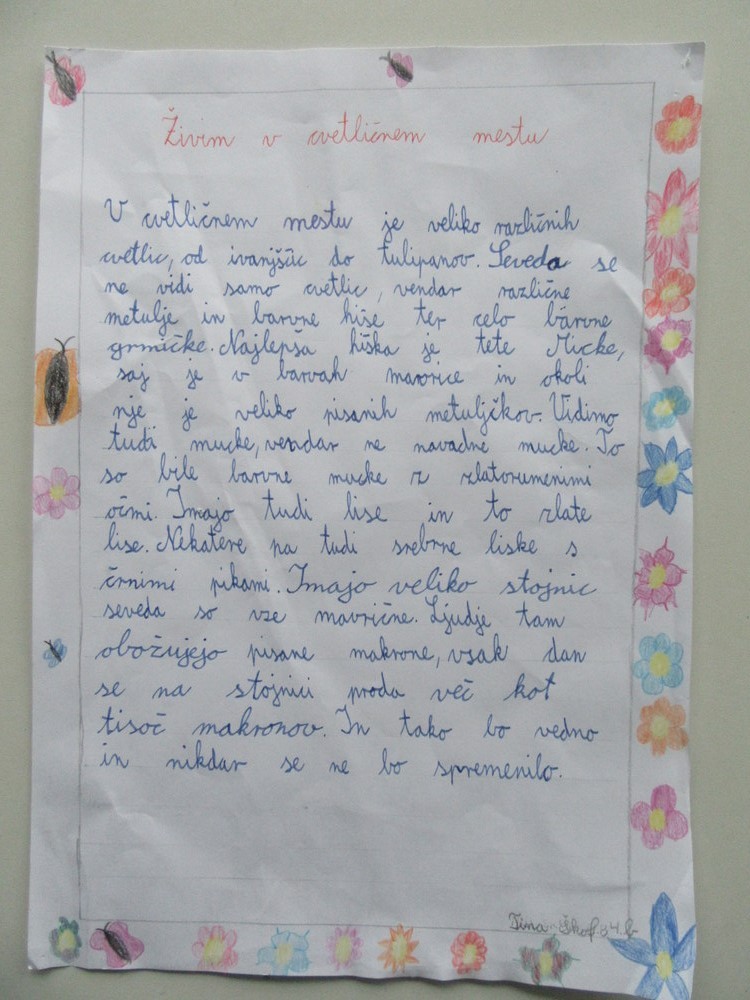 Živim v cvetličnem mestu
V cvetličnem mestu je veliko različnih
cvetlic, od ivanjščic do tulipanov. Seveda se
ne vidi samo cvetlic, vendar različne
metulje in barvne hiše ter celo barvne
grmičke. Najlepša hiška je tete Micke,
saj je v barvah mavrice in okoli
nje je veliko pisanih metuljčkov. Vidimo
tudi mucke, vendar ne navadne mucke. To
so bile barvne mucke z zlatorumenimi
očmi. Imajo tudi lise in to zlate
lise. Nekatere pa tudi srebrne liske s
črnimi pikami. Imajo veliko stojnic
seveda so vse mavrične. Ljudje tam
obožujejo pisane makrone, vsak dan
se na stojnici proda več kot
tisoč makronov. In tako bo vedno
in nikdar se ne bo spremenilo.
Tina 4.b